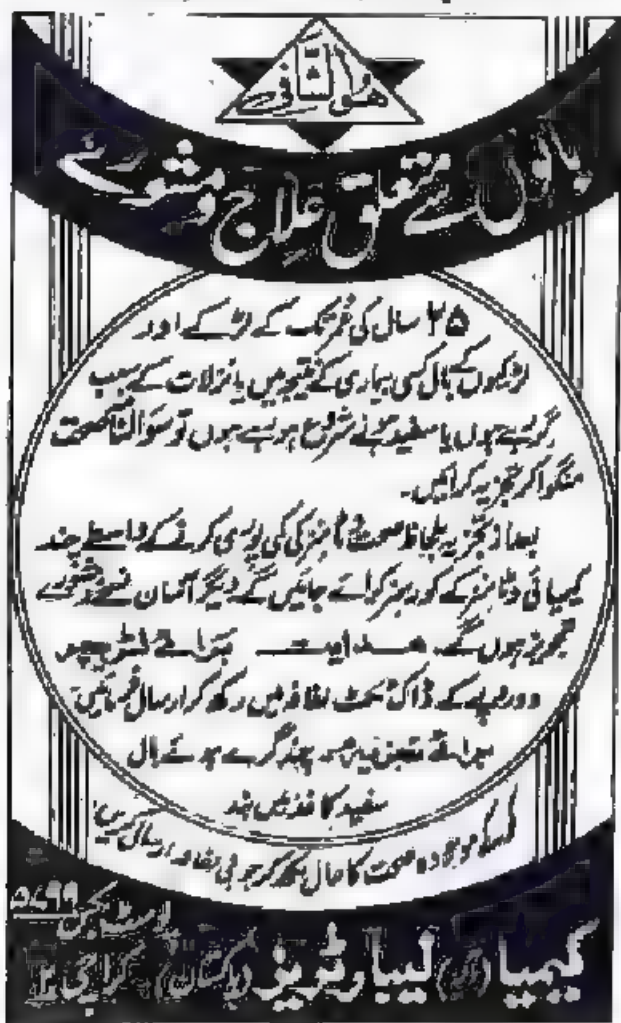 ھوالشافی
بالوں سے متعلق علاج و مشورے
۲۵ سال کی عمر تک کے لڑکے اور
لڑکیوں کے بال کسی بیماری کے نتیجہ میں یا نزلات کے سبب
گر رہے ہوں یا سفید ہونے شروع ہو رہے ہوں تو سوالنامۂ صحت
منگوا کر تجزیہ کرائیں۔
بعد از تجزیہ بلحاظ صحت وٹامنز کی کمی پوری کرنے کے واسطے چند
کیمیائی وٹامنز کے کورسز کرائے جائیں گے دیگر آسان نسخے و مشورے
تجویز ہوں گے۔ ھدایت برائے لٹریچر
دو روپے کے ڈاک ٹکٹ لفافہ میں رکھ کر ارسال فرمائیں۔
برائے تجزیہ چند گرے ہوئے بال
سفید کاغذ میں بند
کرکے موجودہ صحت کا حال لکھ کر جوابی لفافہ ارسال کریں۔
پوسٹ بکس ۵۴۹۹
کیمیا لیبارٹریز (پاکستان) کراچی